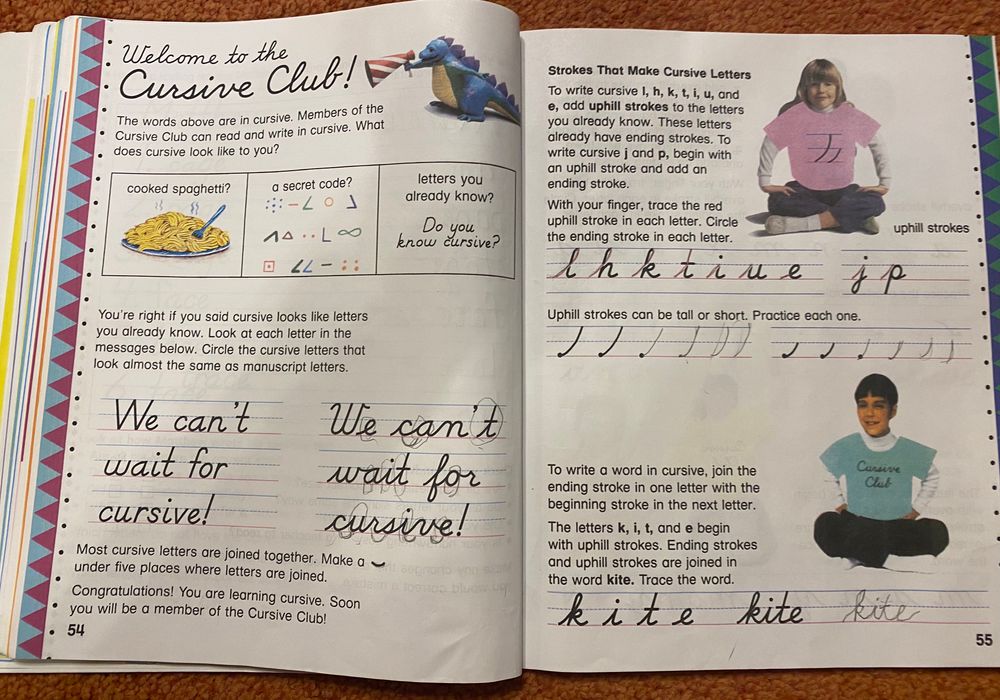 Welcome to the
Cursive Club!
The words above are in cursive. Members of the
Cursive Club can read and write in cursive. What
does cursive look like to you?
cooked spaghetti?
a secret code?
letters you
already know?
Do you
know cursive?
You're right if you said cursive looks like letters
you already know. Look at each letter in the
messages below. Circle the cursive letters that
look almost the same as manuscript letters.
We can't
wait for
cursive!
We can't
wait for
cursive!
Most cursive letters are joined together. Make a
under five places where letters are joined.
Congratulations! You are learning cursive. Soon
you will be a member of the Cursive Club!
54
Strokes That Make Cursive Letters
To write cursive l, h, k, t, i, u, and
e, add uphill strokes to the letters
you already know. These letters
already have ending strokes. To
write cursive j and p, begin with
an uphill stroke and add an
ending stroke.
With your finger, trace the red
uphill stroke in each letter. Circle
the ending stroke in each letter.
uphill strokes
l h k t i u e
j p
Uphill strokes can be tall or short. Practice each one.
Cursive
Club
To write a word in cursive, join the
ending stroke in one letter with the
beginning stroke in the next letter.
The letters k, i, t, and e begin
with uphill strokes. Ending strokes
and uphill strokes are joined in
the word kite. Trace the word.
k i t e kite kite
55